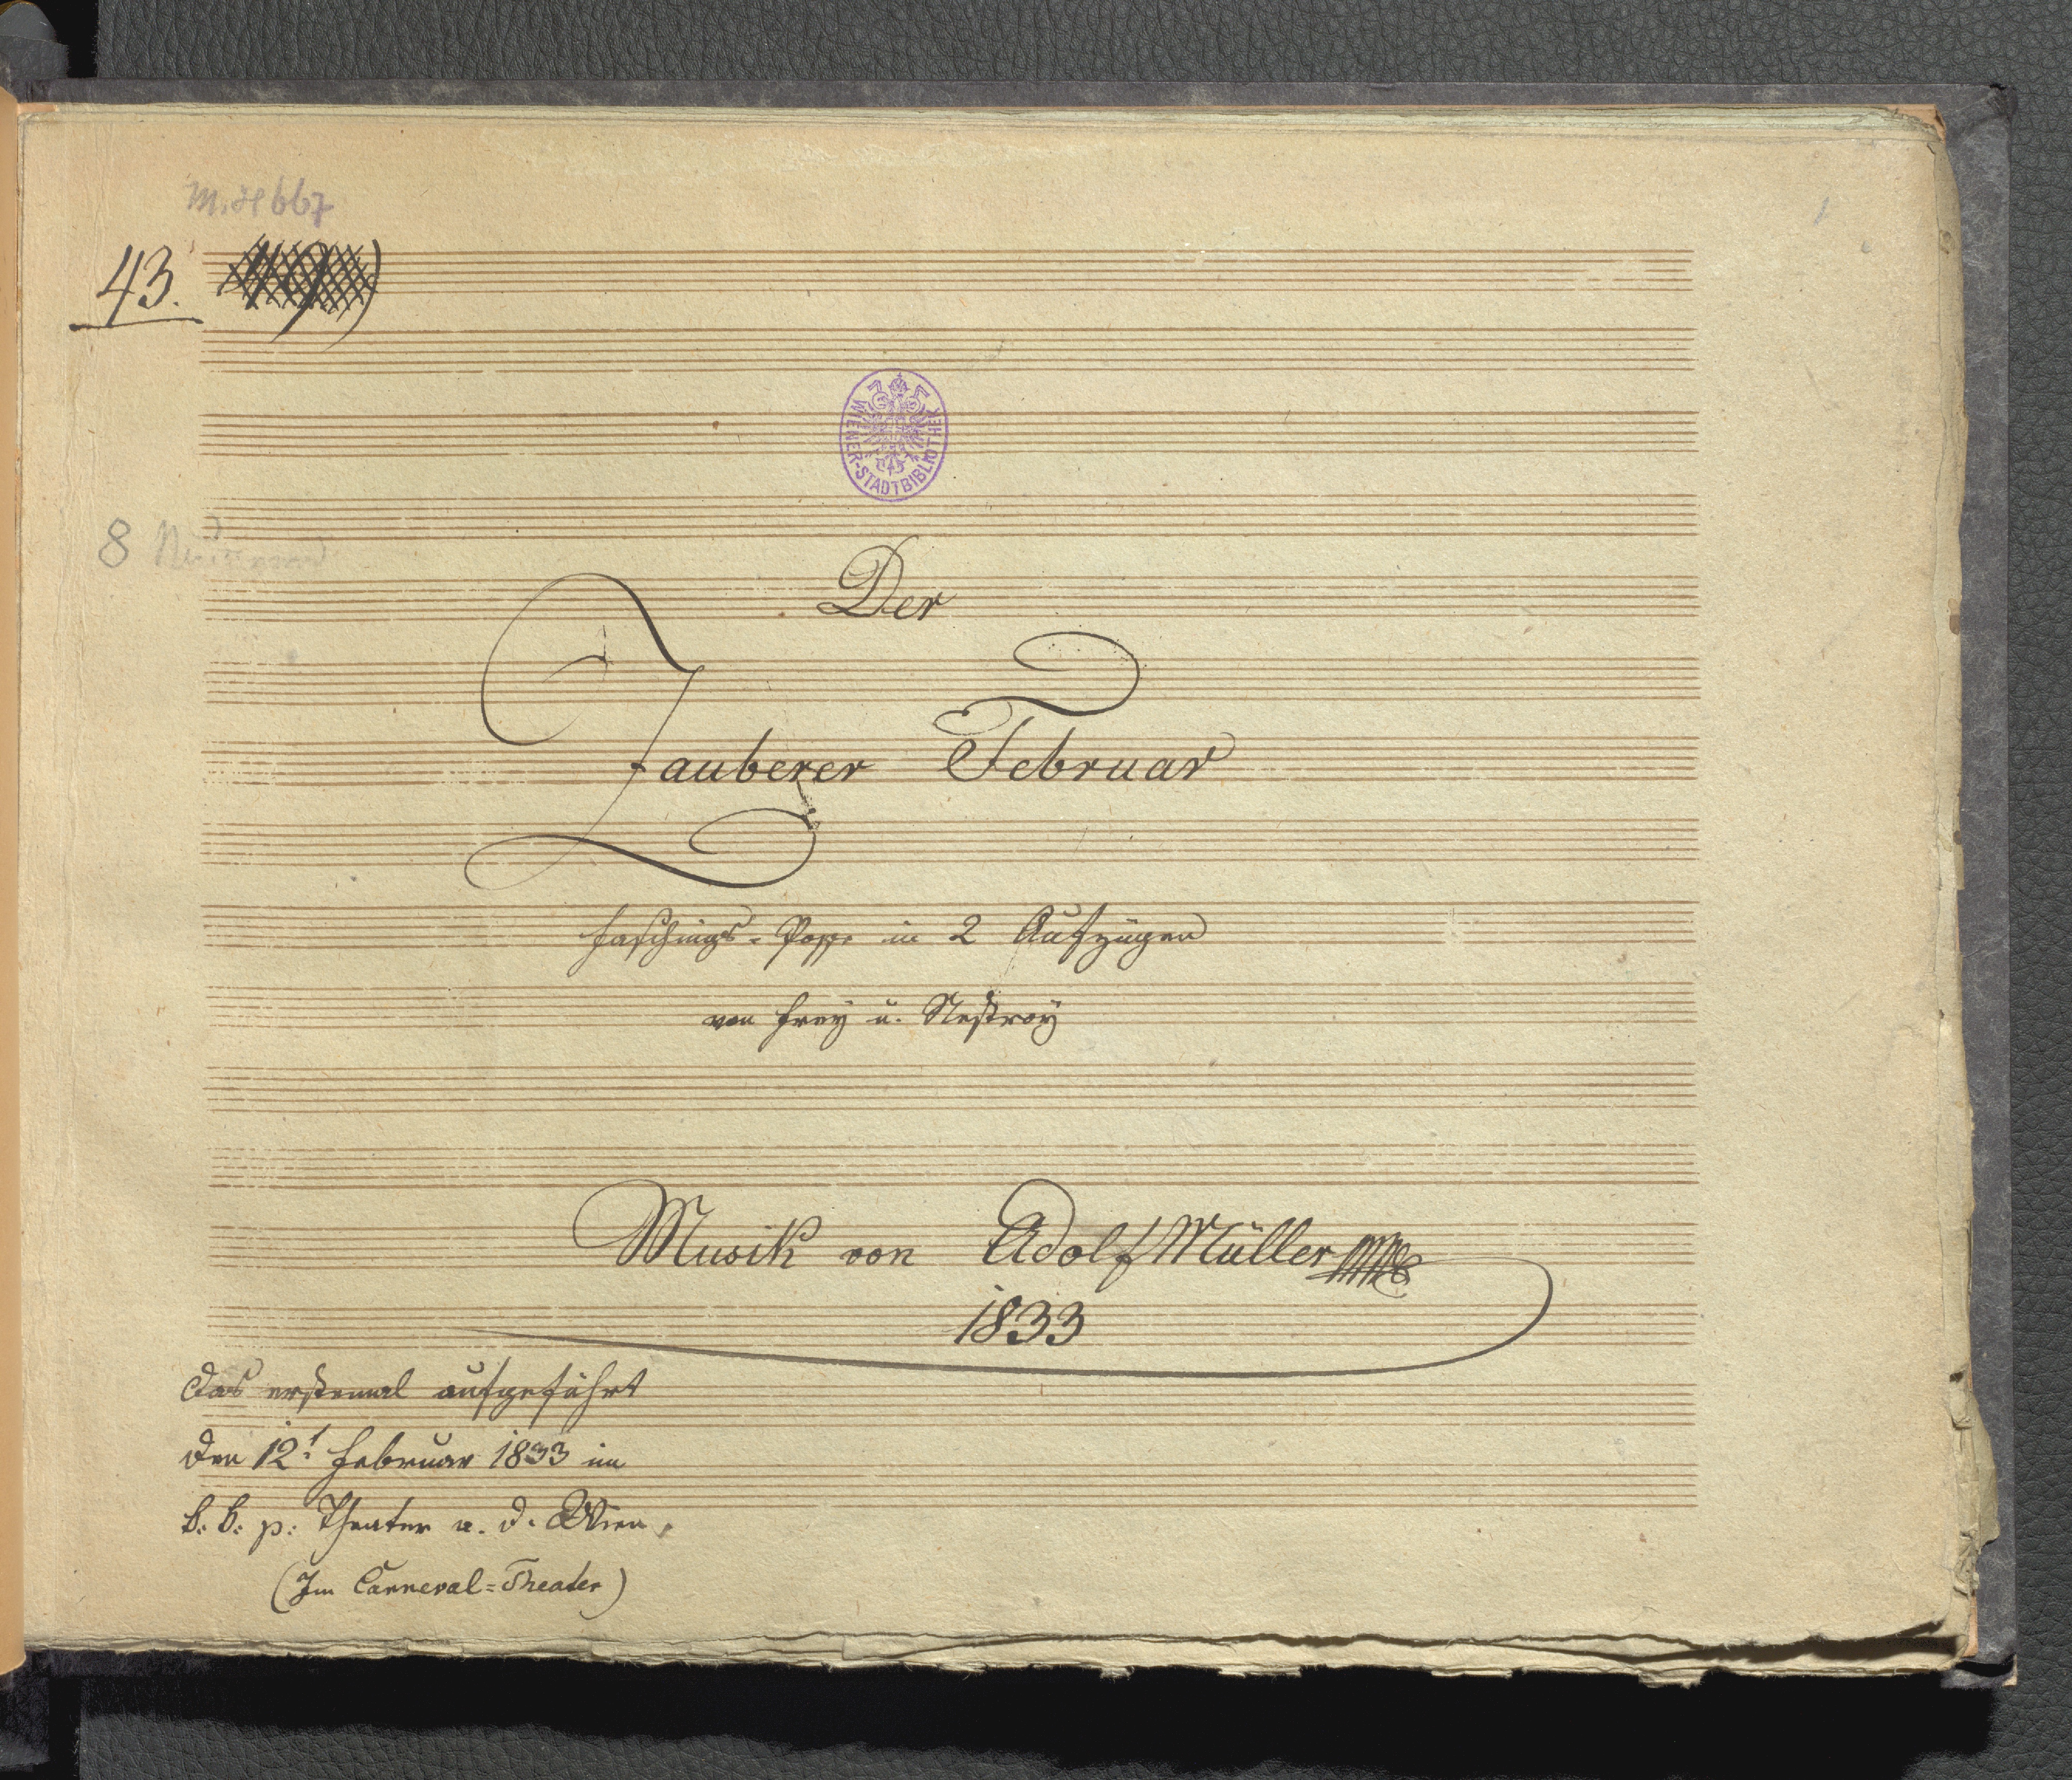 M.H 667
43.
WIENER-STADTBIBLIOTHEK
8
Der
Zauberer Februar
Faschings-Posse in 2 Aufzügen
von Frey u. Nestroy
Musik von Adolf Müller
1833
das erstemal aufgeführt
den 12t Februar 1833 im
k: k: p: Theater a. d. Wien.
(Im Carneval=Theater)
1